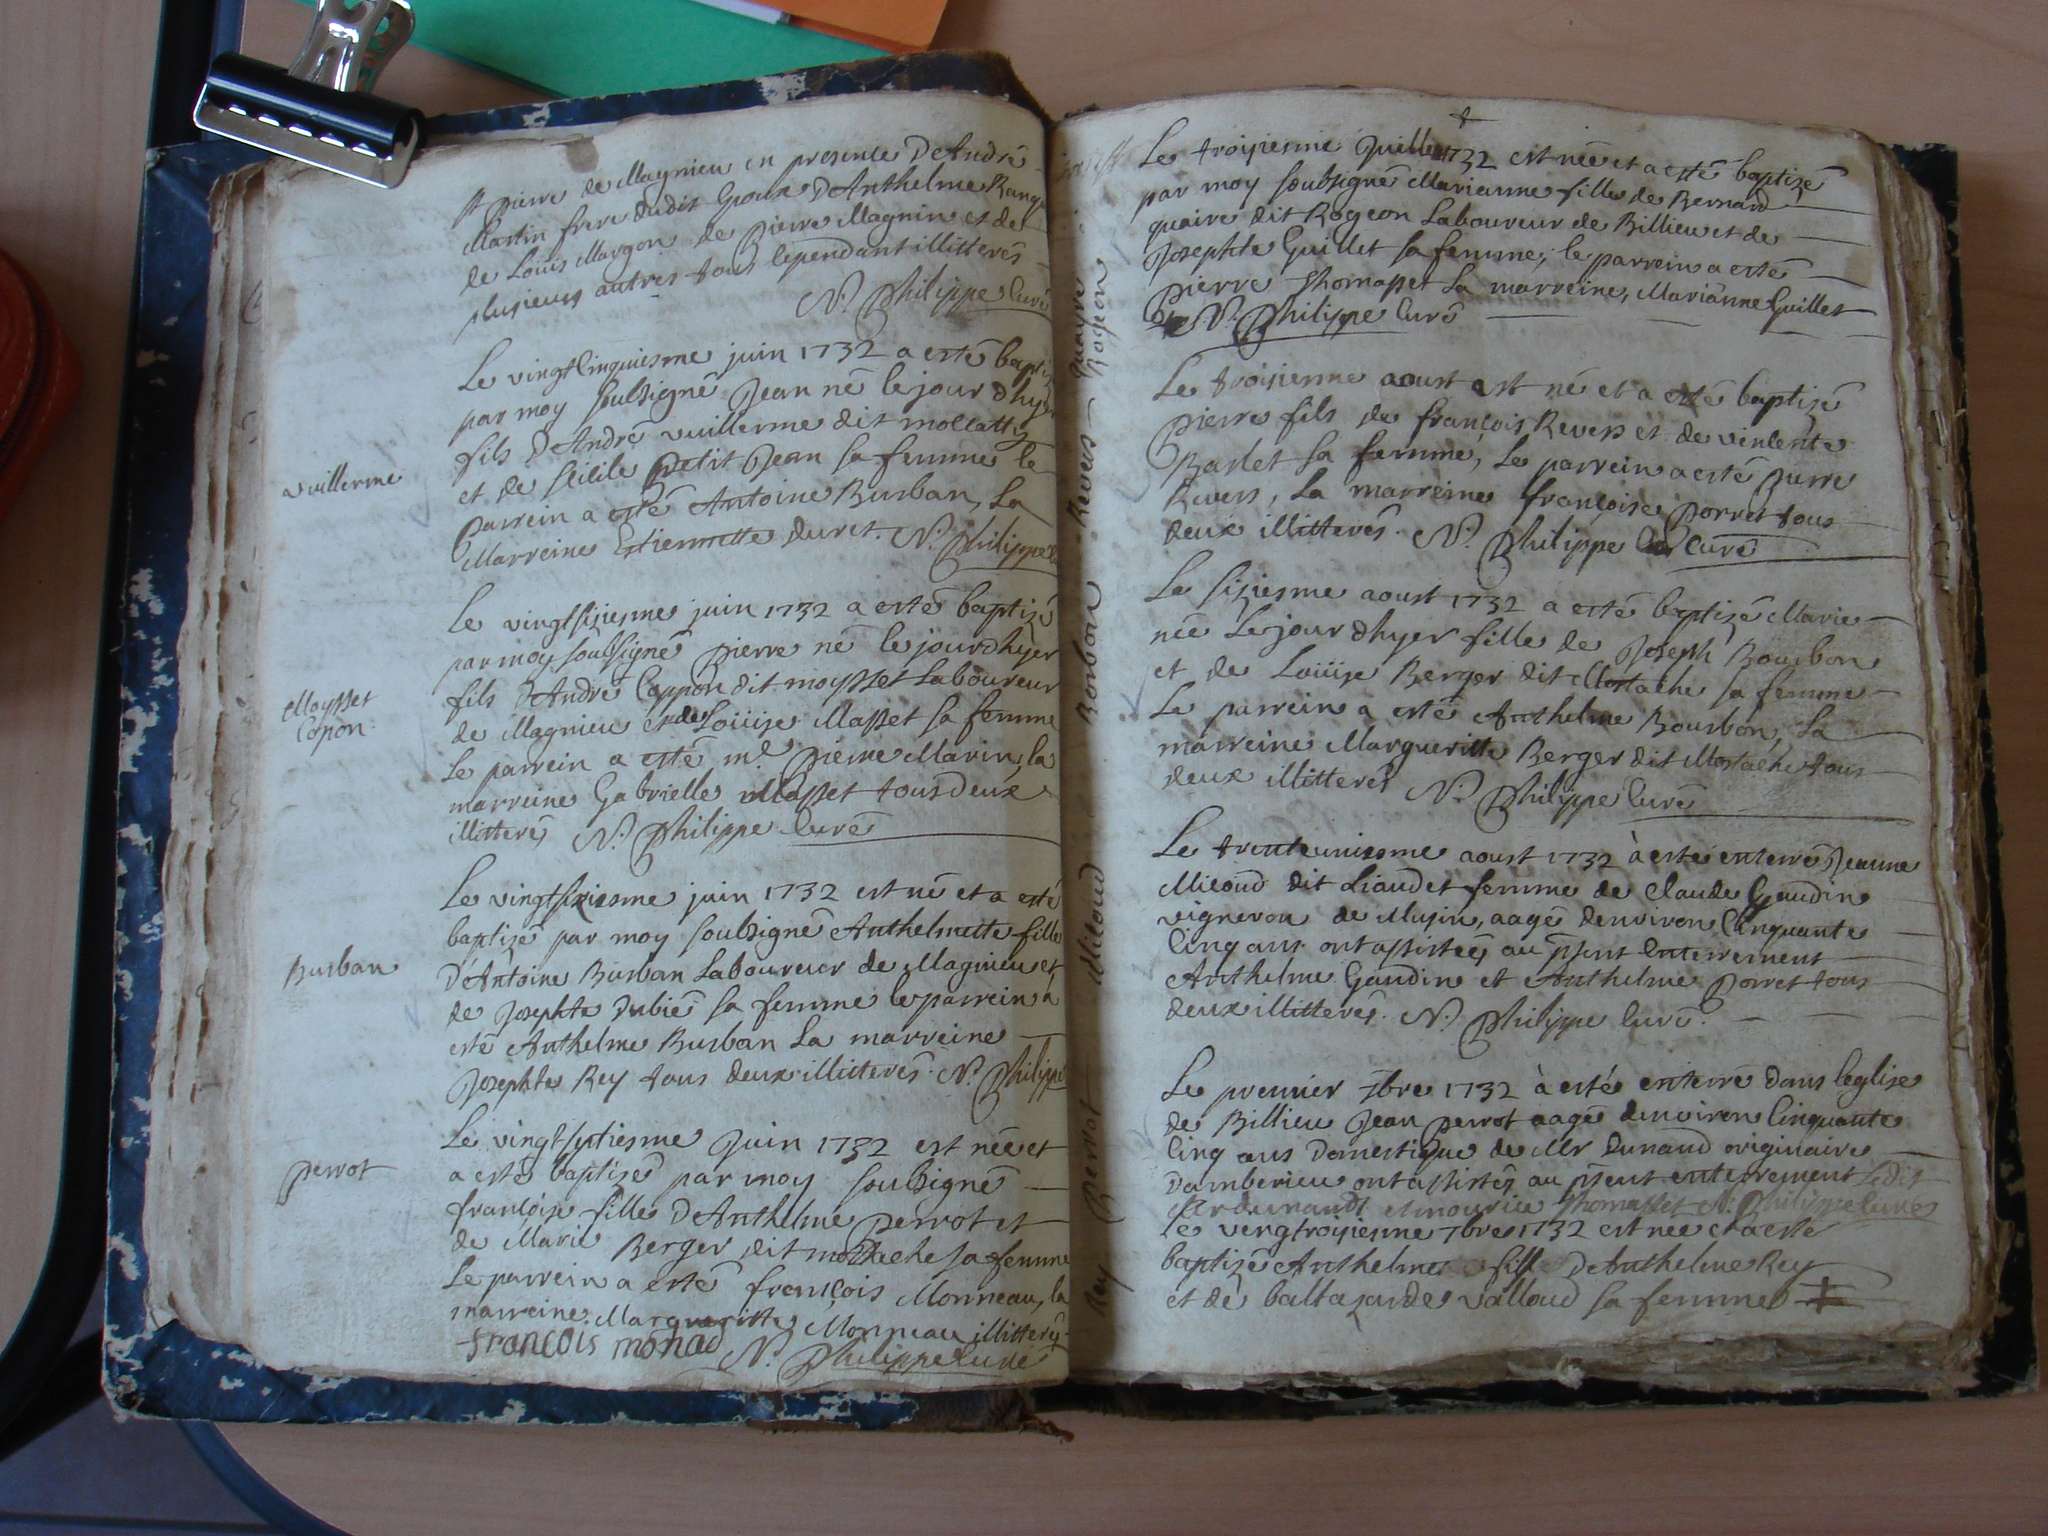 st pierre de Magnieu en presence D'André
Martin frere dudit Epoux D'Anthelme
de Louis Margon de Pierre Magnin et de
plusieurs autres tous cependant illitterés
N. Philippe Curé
Le vingtcinquiesme juin 1732 a esté
par moy soubsigné Jean né le jour d'hyer
fils D'André vuillerme dit
vuillerme
et de Petit Jean sa femme le
parrein a esté Antoine Burban, La
Marreine Estiennette Duret. N. Philippe
Le vingtsisiesme juin 1732 a esté baptizé
par moy soubsigné pierre né le jour d'hyer
fils D'André Coppon dit moysset Laboureur
Moysset
Copon
de Magnieu et de Loüise Masset sa femme
Le parrein a esté me. pierre Marin, la
marreine Gabrielle Masset tous deux
illitteré N. Philippe Curé
Le vingtsixiesme juin 1732 est né et a esté
baptizé par moy soubsigné Anthelmette fille
Burban
D'Antoine Burban Laboureur de Magnieu et
de Josephte Dubié sa femme le parrein a
esté Anthelme Burban La marreine
Josephte Rey tous deux illitterés. N. Philippe
Le vingtseptiesme Juin 1732 est née et
perrot
a esté baptizé par moy soubsigné
françoise fille D'Anthelme perrot et
de Marie Berger dit mostache sa femme
Le parrein a esté françois Monneau, la
marreine Margueritte Monneau illitterés
françois monad N. Philippe Curé
Le troisiesme Juillet 1732 est née et a esté baptizé
par moy soubsigné Marianne fille de Bernard
quaire dit Rogeon Laboureur de Billieu et de
Josephte Guillet sa femme; le parrein a esté
pierre Thomasset La marreine, Marianne Guillet
N. Philippe Curé
quaire
Rogeon
Le troisienne aoust est né et a esté baptizé
pierre fils de françois Revers et de vincente
Barlet sa femme, Le parrein a esté pierre
Revers, La marreine françoise porret tous
deux illitterés. N. Philippe Curé
Revers
Le sisiesme aoust 1732 a esté baptizé Marie
née Le jour d'hyer fille de Joseph Bourbon
et de Loüise Berger dit Mostache sa femme
Le parrein a esté Anthelme Bourbon, La
marreine Margueritte Berger dit Mostache tous
deux illitterés N. Philippe Curé
Bourbon
Le trenteuniesme aoust 1732 à esté enterré Jeanne
Micoud dit Liaudet femme de Claude Gaudin
vigneron de Musin, aagé denviron Cinquante
Cinq ans ont assistés au psent Enterrement
Anthelme Gaudin et Anthelme porret tous
deux illitterés. N. Philippe Curé.
Micoud
Le premier 7bre 1732 à esté enterré dans leglise
de Billieu Jean perrot aagé denviron Cinquante
Cinq ans Domestique de Mr Dunand originaire
Damberieu ont assistés au psent enterrement Ledit
Mr dunandt et mourice Thomasset N. Philippe Curé
Perrot
Le vengtroisiesme 7bre 1732 est nee et a esté
baptizé Anthelme fille D'Anthelme Rey
et de baltazarde valloud sa femme
Rey